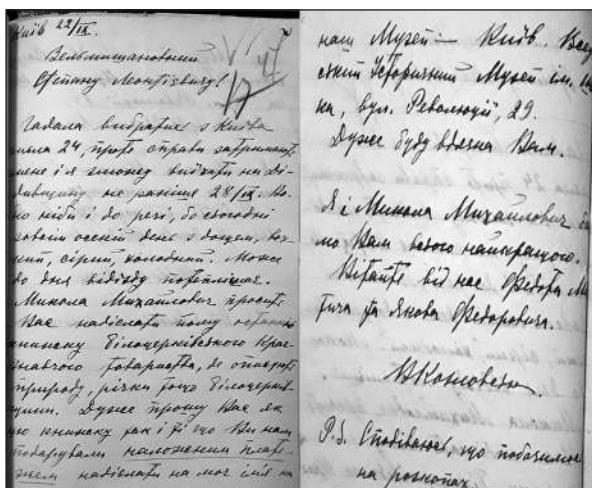 Київ 22/IX.
Вельмишановний
Степану Леонтієвичу!
Гадала вибратися з Києва
числа 24, проте справи затримають
мене і я зможу виїхати на
не раніше 28/IX.
но ніби і до речі, бо сьогодні
зовсім осінній день з дощем,
кий, сірий, холодний. Може
до дня відїзду потеплішає.
Микола Михайлович просить
Вас надіслати йому останню
книжку Білоцерківського Крає-
знавчого товариства, де описують
природу, річки тощо Білоцерків-
щини. Дуже прошу Вас як
цю книжку так і ті що Ви нам
подарували наложеним плате-
жем надіслати на моє імя на
наш Музей — Київ. Всеу
ський Історичний Музей ім. Ш
ка, вул. Революції, 29.
Дуже буду вдячна Вам.
Я і Микола Михайлович ба
мо Вам всього найкращого.
Вітайте від нас Федота М
тича та Якова Федоровича.
В Козловська.
P.S. Сподіваюсь, що побачимось
на розкопах.